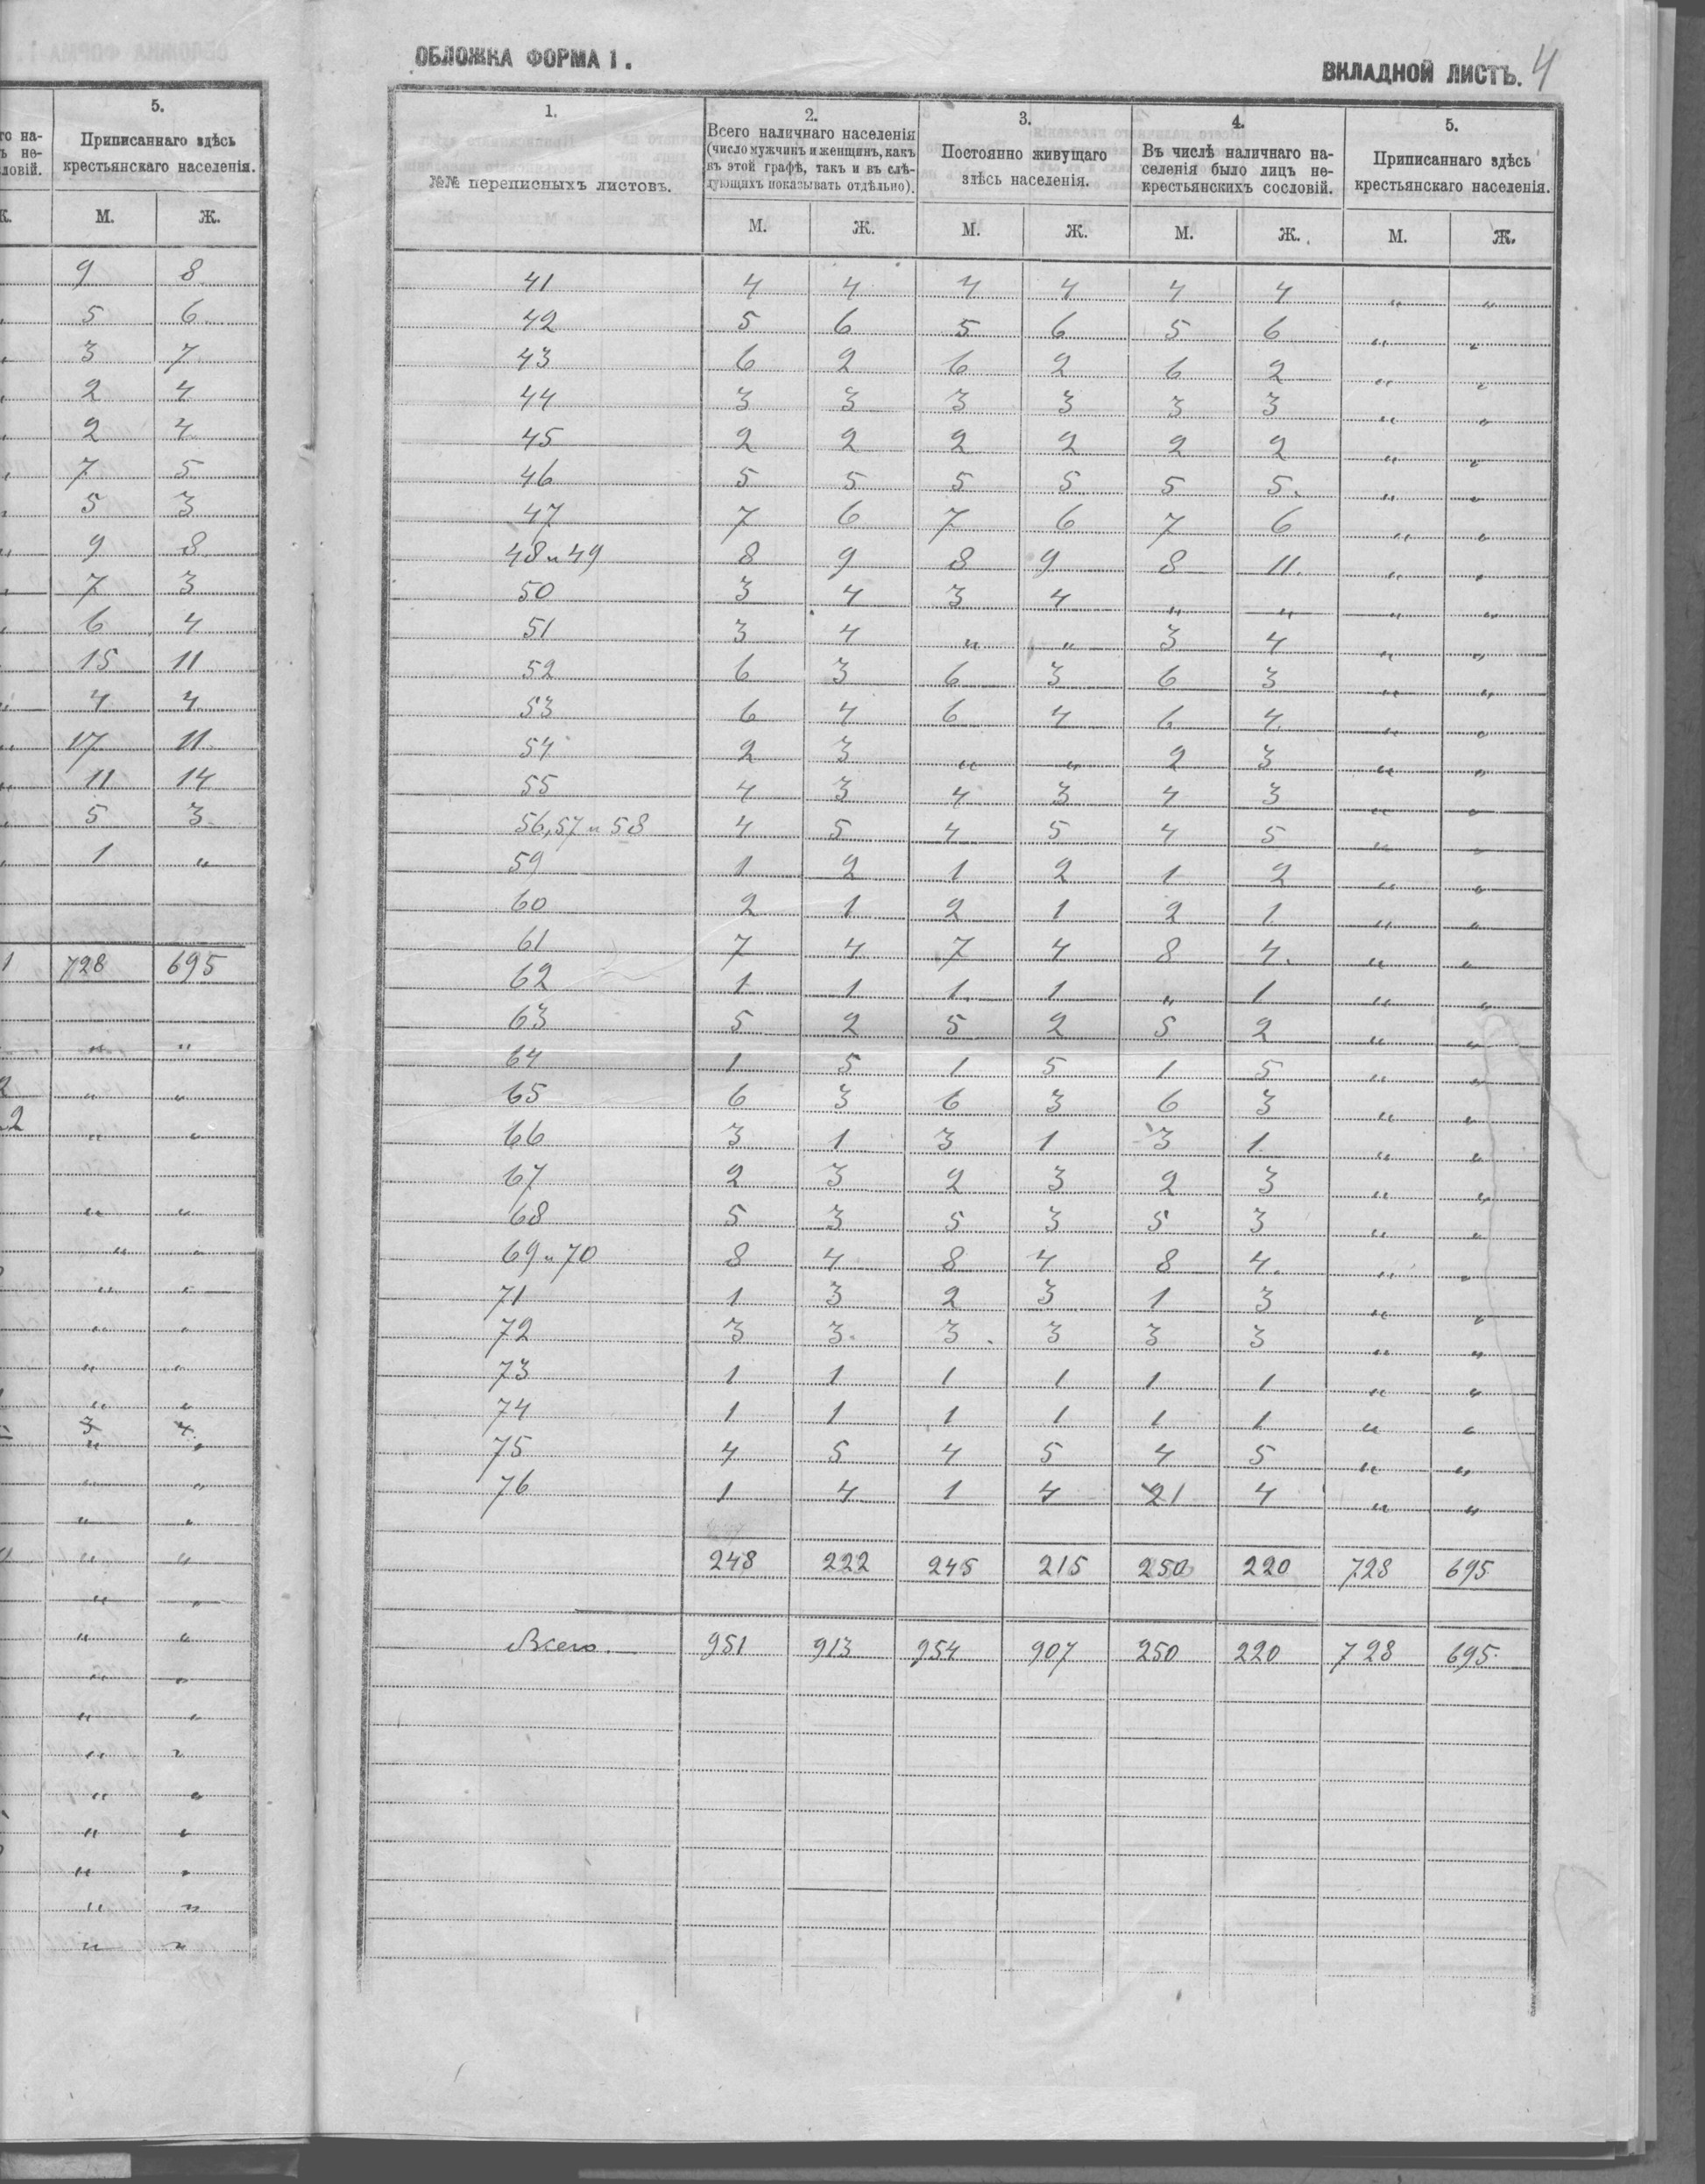 го на-
ъ не-
ловій.
Ж.
5.
Приписаннаго здѣсь
крестьянскаго населенія.
М. Ж.
9 8
5 6
3 7
2 4
2 4
7 5
5 3
9 8
7 3
6 4
15 11
4 4
17 11
11 14
5 3
1 „
1 728 695
„ „
2 „ „
2 „ „
„ „
„ „
„ „
„ „
„ „
„ „
3 4
„ „
„ „
„ „
„ „
„ „
„ „
„ „
„ „
„ „
„ „
„ „
„ „
„ „
„ „
ОБЛОЖКА ФОРМА 1.
ВКЛАДНОЙ ЛИСТЪ. 4
1. 2. 3. 4. 5.
№№ переписныхъ листовъ.
Всего наличнаго населенія
(число мужчинъ и женщинъ, какъ
въ этой графѣ, такъ и въ слѣ-
дующихъ показывать отдѣльно).
Постоянно живущаго
здѣсь населенія.
Въ числѣ наличнаго на-
селенія было лицъ не-
крестьянскихъ сословій.
Приписаннаго здѣсь
крестьянскаго населенія.
М. Ж. М. Ж. М. Ж. М. Ж.
41 4 4 4 4 4 4 „ „
42 5 6 5 6 5 6 „ „
43 6 2 6 2 6 2 „ „
44 3 3 3 3 3 3 „ „
45 2 2 2 2 2 2 „ „
46 5 5 5 5 5 5 „ „
47 7 6 7 6 7 6 „ „
48 и 49 8 9 8 9 8 11 „ „
50 3 4 3 4 „ „ „ „
51 3 4 „ „ 3 4 „ „
52 6 3 6 3 6 3 „ „
53 6 4 6 4 6 4 „ „
54 2 3 „ „ 2 3 „ „
55 4 3 4 3 4 3 „ „
56, 57 и 58 4 5 4 5 4 5 „ „
59 1 2 1 2 1 2 „ „
60 2 1 2 1 2 1 „ „
61 7 4 7 4 8 4 „ „
62 1 1 1 1 „ 1 „ „
63 5 2 5 2 5 2 „ „
64 1 5 1 5 1 5 „ „
65 6 3 6 3 6 3 „ „
66 3 1 3 1 3 1 „ „
67 2 3 2 3 2 3 „ „
68 5 3 5 3 5 3 „ „
69 и 70 8 4 8 4 8 4 „ „
71 1 3 2 3 1 3 „ „
72 3 3 3 3 3 3 „ „
73 1 1 1 1 1 1 „ „
74 1 1 1 1 1 1 „ „
75 4 5 4 5 4 5 „ „
76 1 4 1 4 21 4 „ „
248 222 245 215 250 220 728 695
Всего. 951 913 954 907 250 220 728 695